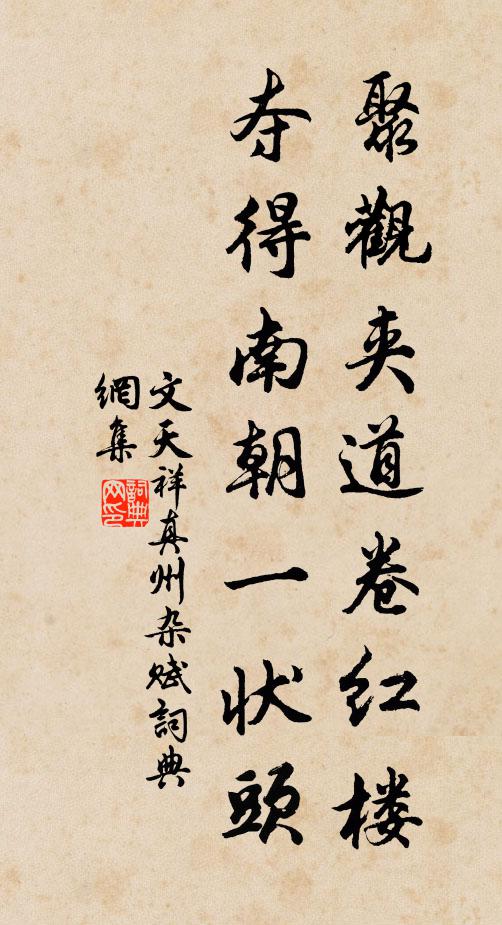 聚觀夹道卷红楼
夺得南朝一状頭
文天祥真州杂赋詞典
網集
詞典
网印